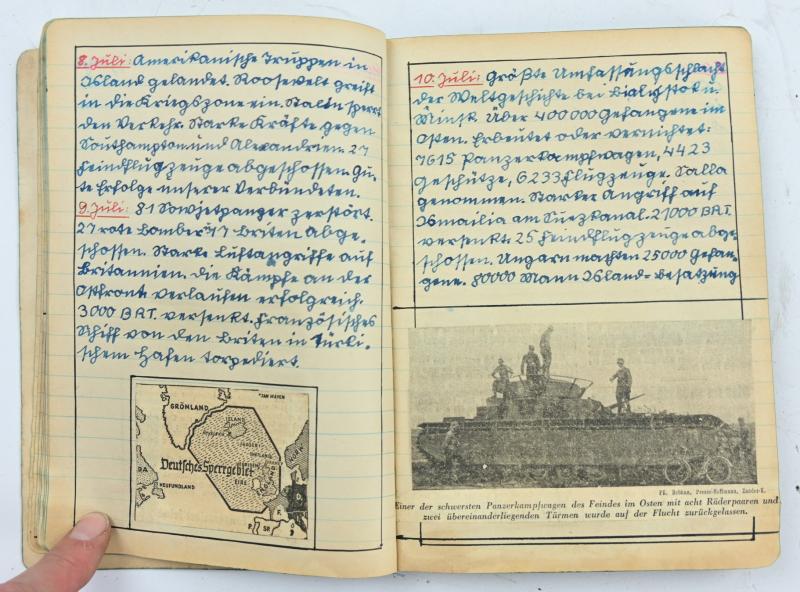 8. Juli: Amerikanische Truppen in
Island gelandet. Roosevelt greift
in die Kriegszone ein. Stalin sperrt
den Verkehr. Starke Kräfte gegen
Southampton und Alexandrien. 27
Feindflugzeuge abgeschossen. Gu-
te Erfolge unserer Verbündeten.
9. Juli: 81 Sowjetpanzer zerstört.
27 rote Bomber 17 Briten abge-
schossen. Starke Luftangriffe auf
Britannien. Die Kämpfe an der
Ostfront verlaufen erfolgreich.
3000 BRT. versenkt. Französisches
Schiff von den Briten in Türki-
schem Hafen torpediert.
JAN MAYEN
GRÖNLAND
ISLAND
Deutsches Sperrgebiet
EIRE
NEUFUNDLAND
DA
F.
P.
SP.
10. Juli: Größte Umfassungsschlacht
der Weltgeschichte bei Bialystok u.
Minsk. Über 400 000 Gefangene im
Osten. Erbeutet oder vernichtet:
7615 Panzerkampfwagen, 4423
Geschütze, 6233 Flugzeuge. Salla
genommen. Starker Angriff auf
Ismailia am Suezkanal. 21000 BRT.
versenkt. 25 Feindflugzeuge abge-
schossen. Ungarn machten 25000 Gefan-
gene. 80000 Mann Island-Besatzung
PK.
Einer der schwersten Panzerkampfwagen des Feindes im Osten mit acht Räderpaaren und
zwei übereinanderliegenden Türmen wurde auf der Flucht zurückgelassen.